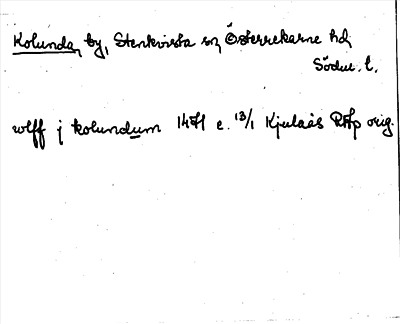 Kolunda, by, Stenkvista sn, Österrekarne hd,
Söduml. l.
wlff j kolundum 1471 e. 13/1 Kjulaås RAp orig.